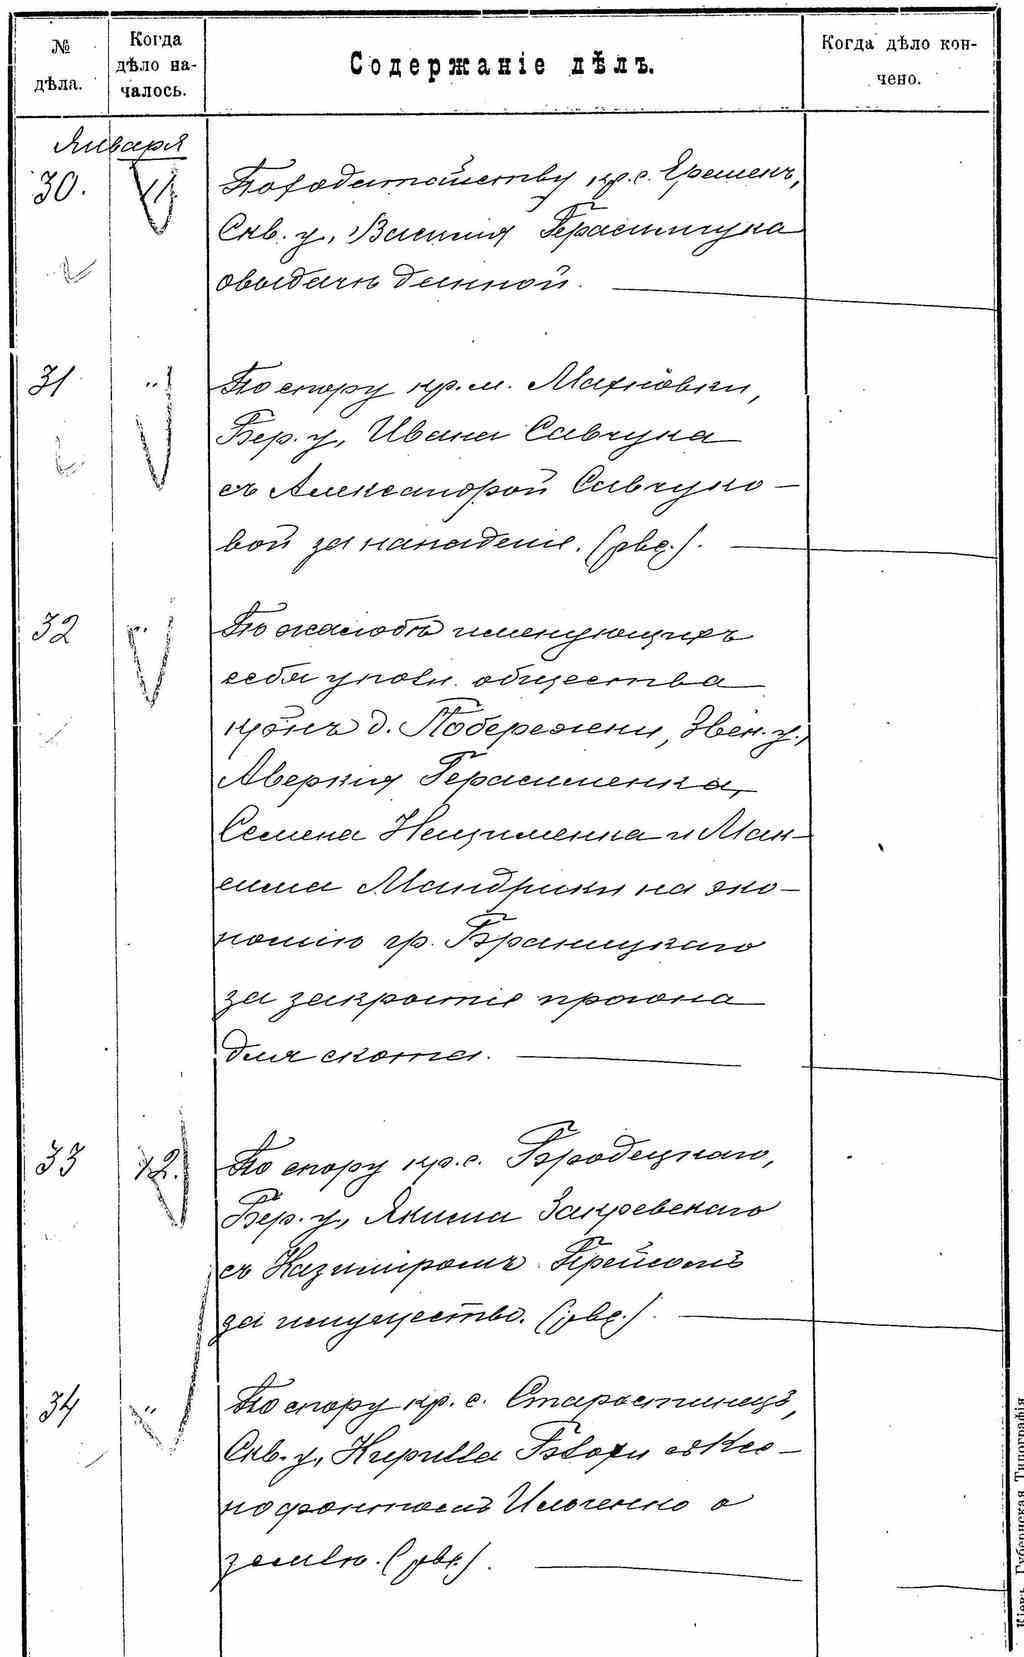 № дѣла.
Когда дѣло на-чалось.
Содержаніе дѣлъ.
Когда дѣло кон-чено.
Января
30. 11.
По ходатайству кр. с. Еременъ,
Скв. у., Василія Герасимчука
о выдачѣ данной.
31 "
По спору кр. м. Махновки,
Бер. у., Ивана Савчука
съ Александрой Савчуко-
вой за нападеніе.
32 "
По жалобѣ именующихъ
себя уполн. общества
кр-нъ д. Побережки, Звен. у.,
Аверкія Герасименка,
Семена Нещименка и Мак-
сима Мандрики на эко-
номію гр. Браницкаго
за закрытіе прогона
для скота.
33 12.
По спору кр. с. Бродецкаго,
Бер. у., Якима Закревскаго
съ Казиміромъ
за имущество.
34 "
По спору кр. с. Старостинецъ,
Скв. у., Кирилла съ Ксе-
нофонтомъ Ильченко о
землѣ.
Кіевъ, Губернская Типографія